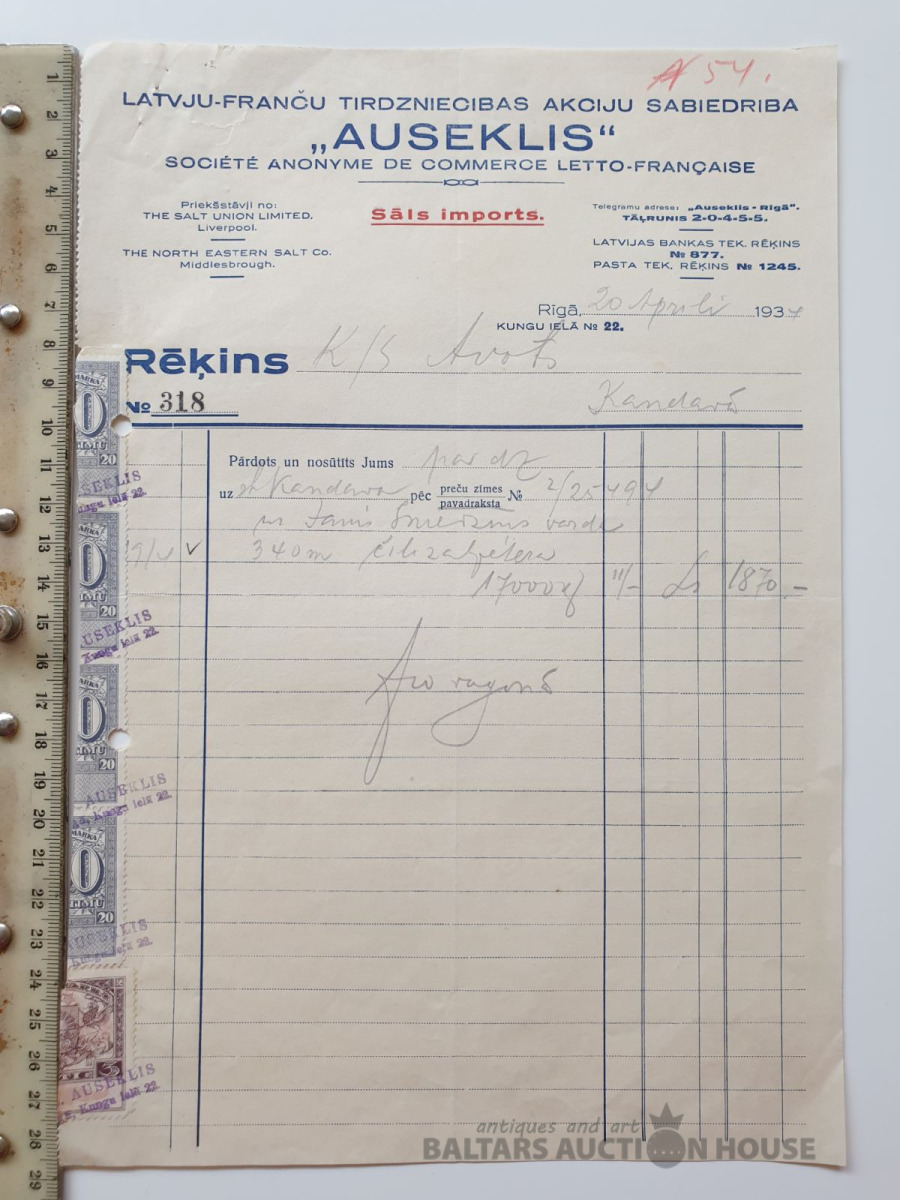 № 54.
LATVJU-FRANČU TIRDZNIECIBAS AKCIJU SABIEDRIBA
„AUSEKLIS“
SOCIÉTÉ ANONYME DE COMMERCE LETTO-FRANÇAISE
Priekšstāvji no:
THE SALT UNION LIMITED.
Liverpool.
THE NORTH EASTERN SALT Co.
Middlesbrough.
Sāls imports.
Telegramu adrese: „Auseklis - Rīgā“.
TĀĻRUNIS 2-0-4-5-5.
LATVIJAS BANKAS TEK. RĒĶINS
№ 877.
PASTA TEK. RĒĶINS № 1245.
Rīgā, 20 Aprili 1934
KUNGU IELĀ № 22.
Rēķins K/S Avots
№ 318 Kandavā
Pārdots un nosūtīts Jums
uz Kandava pēc preču zīmes pavadraksta № 2/25494
340 m
17000 11/- Ls 1870.-
MARKA
20
AUSEKLIS
Kungu ielā 22.
20
AUSEKLIS
Kungu ielā 22.
20
AUSEKLIS
Kungu ielā 22.
MARKA
20
AUSEKLIS
Kungu ielā 22.
3
AUSEKLIS
Kungu ielā 22.
1 2 3 4 5 6 7 8 9 10 11 12 13 14 15 16 17 18 19 20 21 22 23 24 25 26 27 28 29
antiques and art
BALTARS AUCTION HOUSE